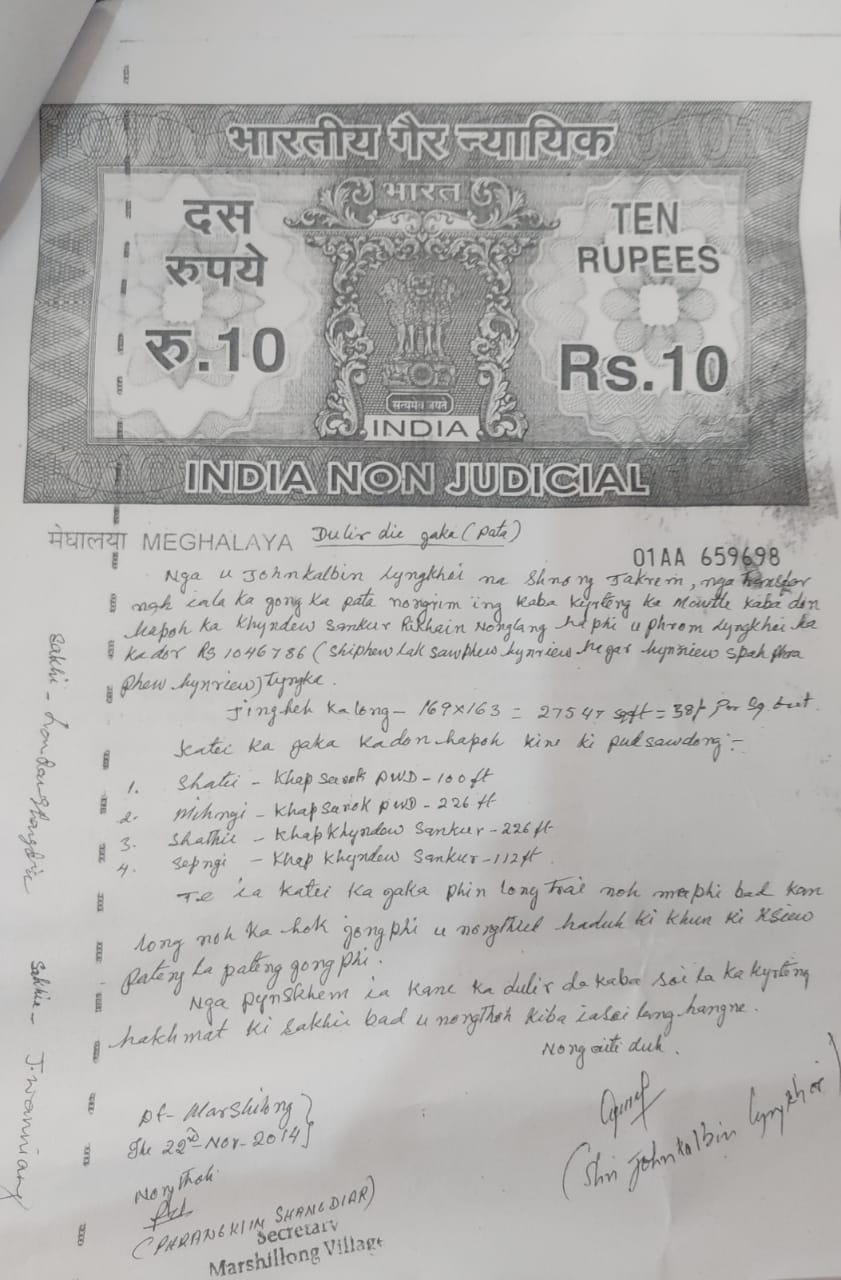 भारतीय गैर न्यायिक
भारत
दस
रुपये
रु.10
TEN
RUPEES
Rs.10
सत्यमेव जयते
INDIA
INDIA NON JUDICIAL
मेघालया MEGHALAYA
Dulir die jaka (Pata)
01AA 659698
Nga u Johnkalbin Lyngkhoi na Shnong Jakrem, nga Transfer
noh ia la ka jong ka pata nongrim ing kaba kyrteng ka kaba don
hapoh ka Khyndew Sankur Nonglang ha phi u Phrom Lyngkhoi ka
ka dor Rs 1046786 (Shiphew lak sawphew hynriew hajar hynniew spah phra
phew hynriew) Tyngka.
Jingheh ka long - 169 x 163 = 27547 sqft = 38/- Per Sq. feet.
Katei ka jaka ka don hapoh kine ki pud sawdong :-
1. Shatei - Khap Surok PWD - 100 ft
2. Mihngi - Khap Surok PWD - 226 ft
3. Shathie - Khap Khyndew Sankur - 226 ft
4. Sepngi - Khap Khyndew Sankur - 112 ft.
Te ia katei ka jaka phin long trai noh ma phi bad kan
long noh ka hok jong phi u nongthied haduh ki khun ki ksiew
pateng la pateng jong phi.
Nga pynskhem ia kane ka dulir da kaba soi la ka kyrteng
hakhmat ki sakhi bad u nongthoh kiba iasoi lang hangne.
Nong aiti duh.
(Shri Johnkalbin Lyngkhoi)
Dt- Marshilong
The 22nd-Nov-2014
Nongthoh
(PHRANGKIIN SHANGDIAR)
Secretary
Marshillong Village
Sakhi -
Sakhi - J. Wanniang